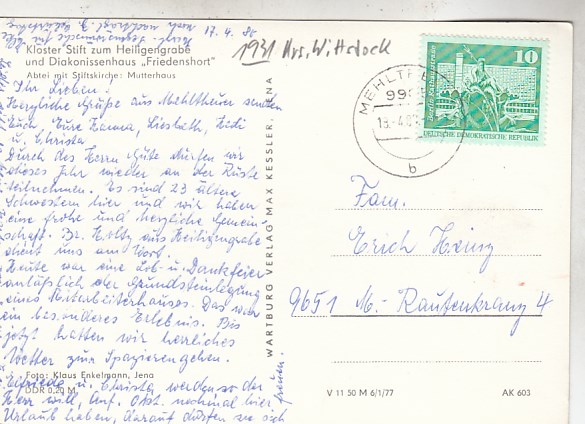 17. 4. 80
Kloster Stift zum Heiligengrabe
und Diakonissenhaus „Friedenshort"
Abtei mit Stiftskirche: Mutterhaus
1931 Krs. Wittstock
Ihr Lieben!
Herzliche Grüße aus Mehltheuer senden
Euch, Eure Hanna, Liesbeth, Heidi
u. Christa
Durch des Herrn Güte dürfen wir
dieses Jahr wieder an der Rüste
teilnehmen. Es sind 23 ältere
Schwestern hier und wir haben
eine frohe und herzliche Gemein-
schaft. Br. Holtz aus Heiligengrabe
dient uns am Wort.
Heute war eine Lob- u. Dankfeier
anläßlich der Grundsteinlegung
eines Mitarbeiterhauses. Das war
ein besonderes Erlebnis. Bis
jetzt hatten wir herrliches
Wetter zum Spazierengehen.
Foto: Klaus Enkelmann, Jena
DDR 0,20 M
Elfriede u. Christa werden so der
Herr will, Anf. Okt. nochmal hier
Urlaub haben, darauf dürfen sie sich
freuen.
WARTBURG VERLAG MAX KESSLER, JENA
MEHLTHEUER
b
10
DEUTSCHE DEMOKRATISCHE REPUBLIK
Fam.
Erich Heinz
9651 M.-Rautenkranz 4
V 11 50 M 6/1/77
AK 603